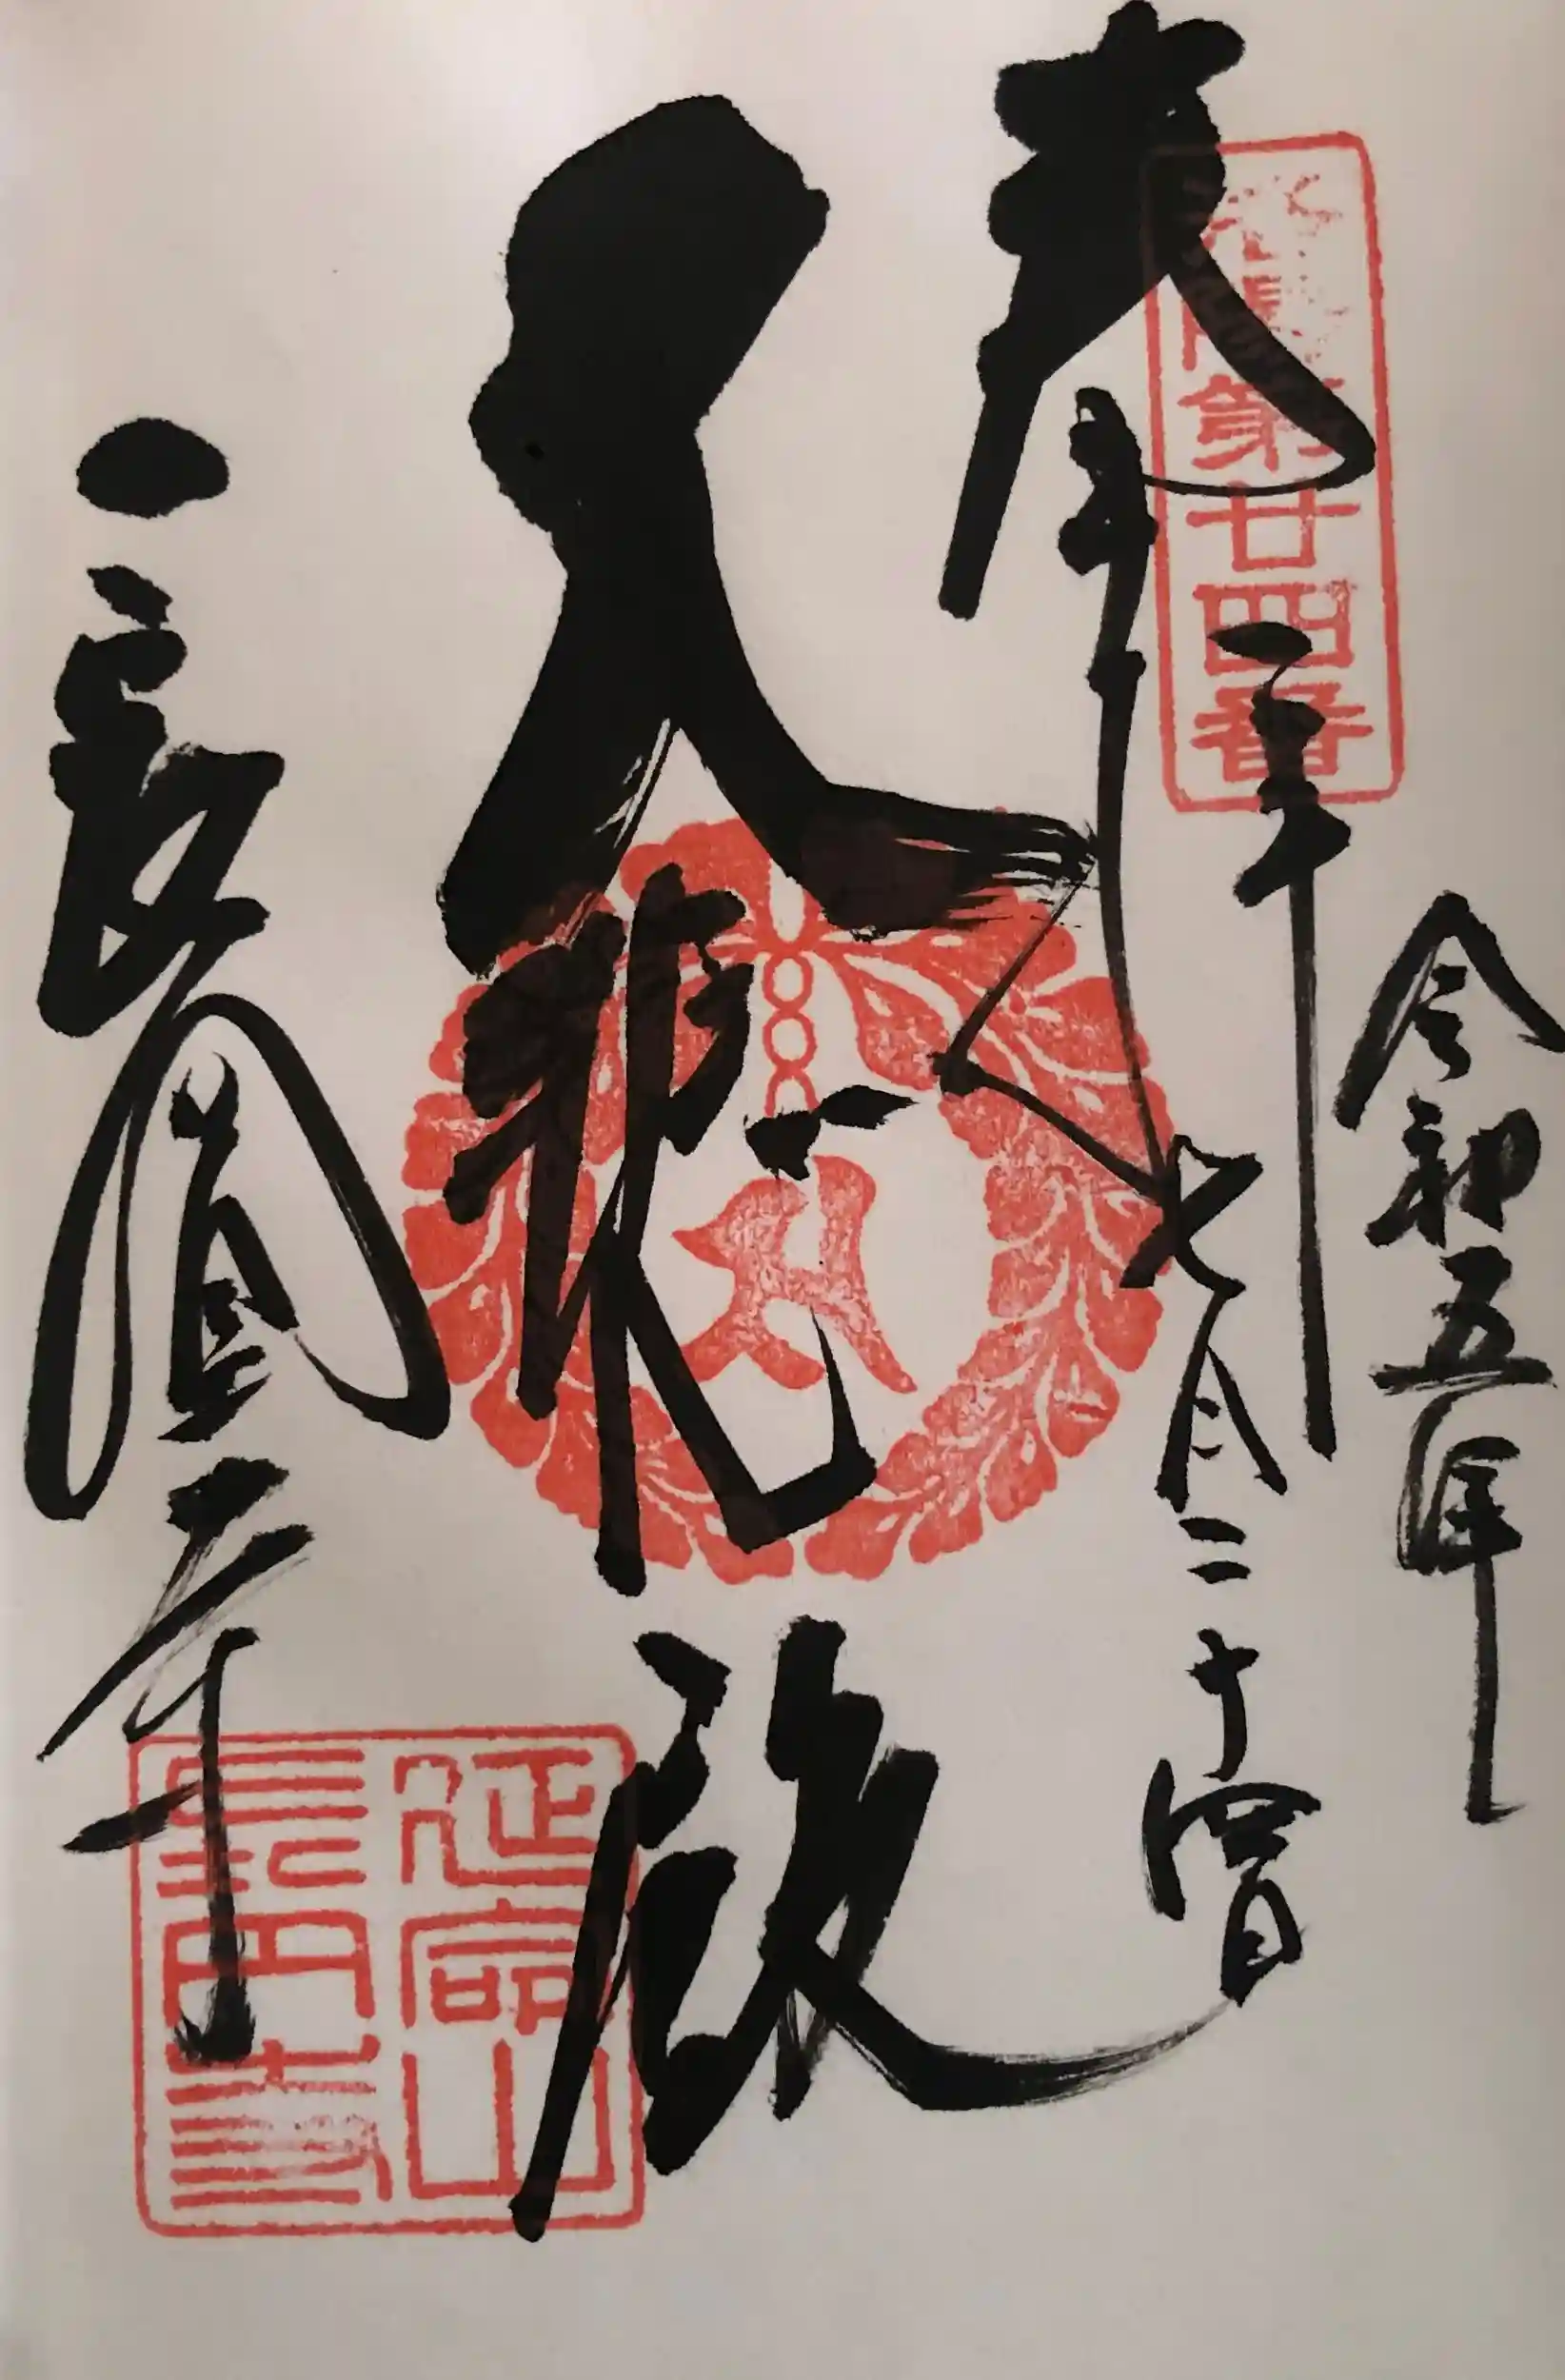 洛陽第廿四番
奉拝
令和五年
七月二十四日
大悲殿
長圓寺
延命山
長円寺